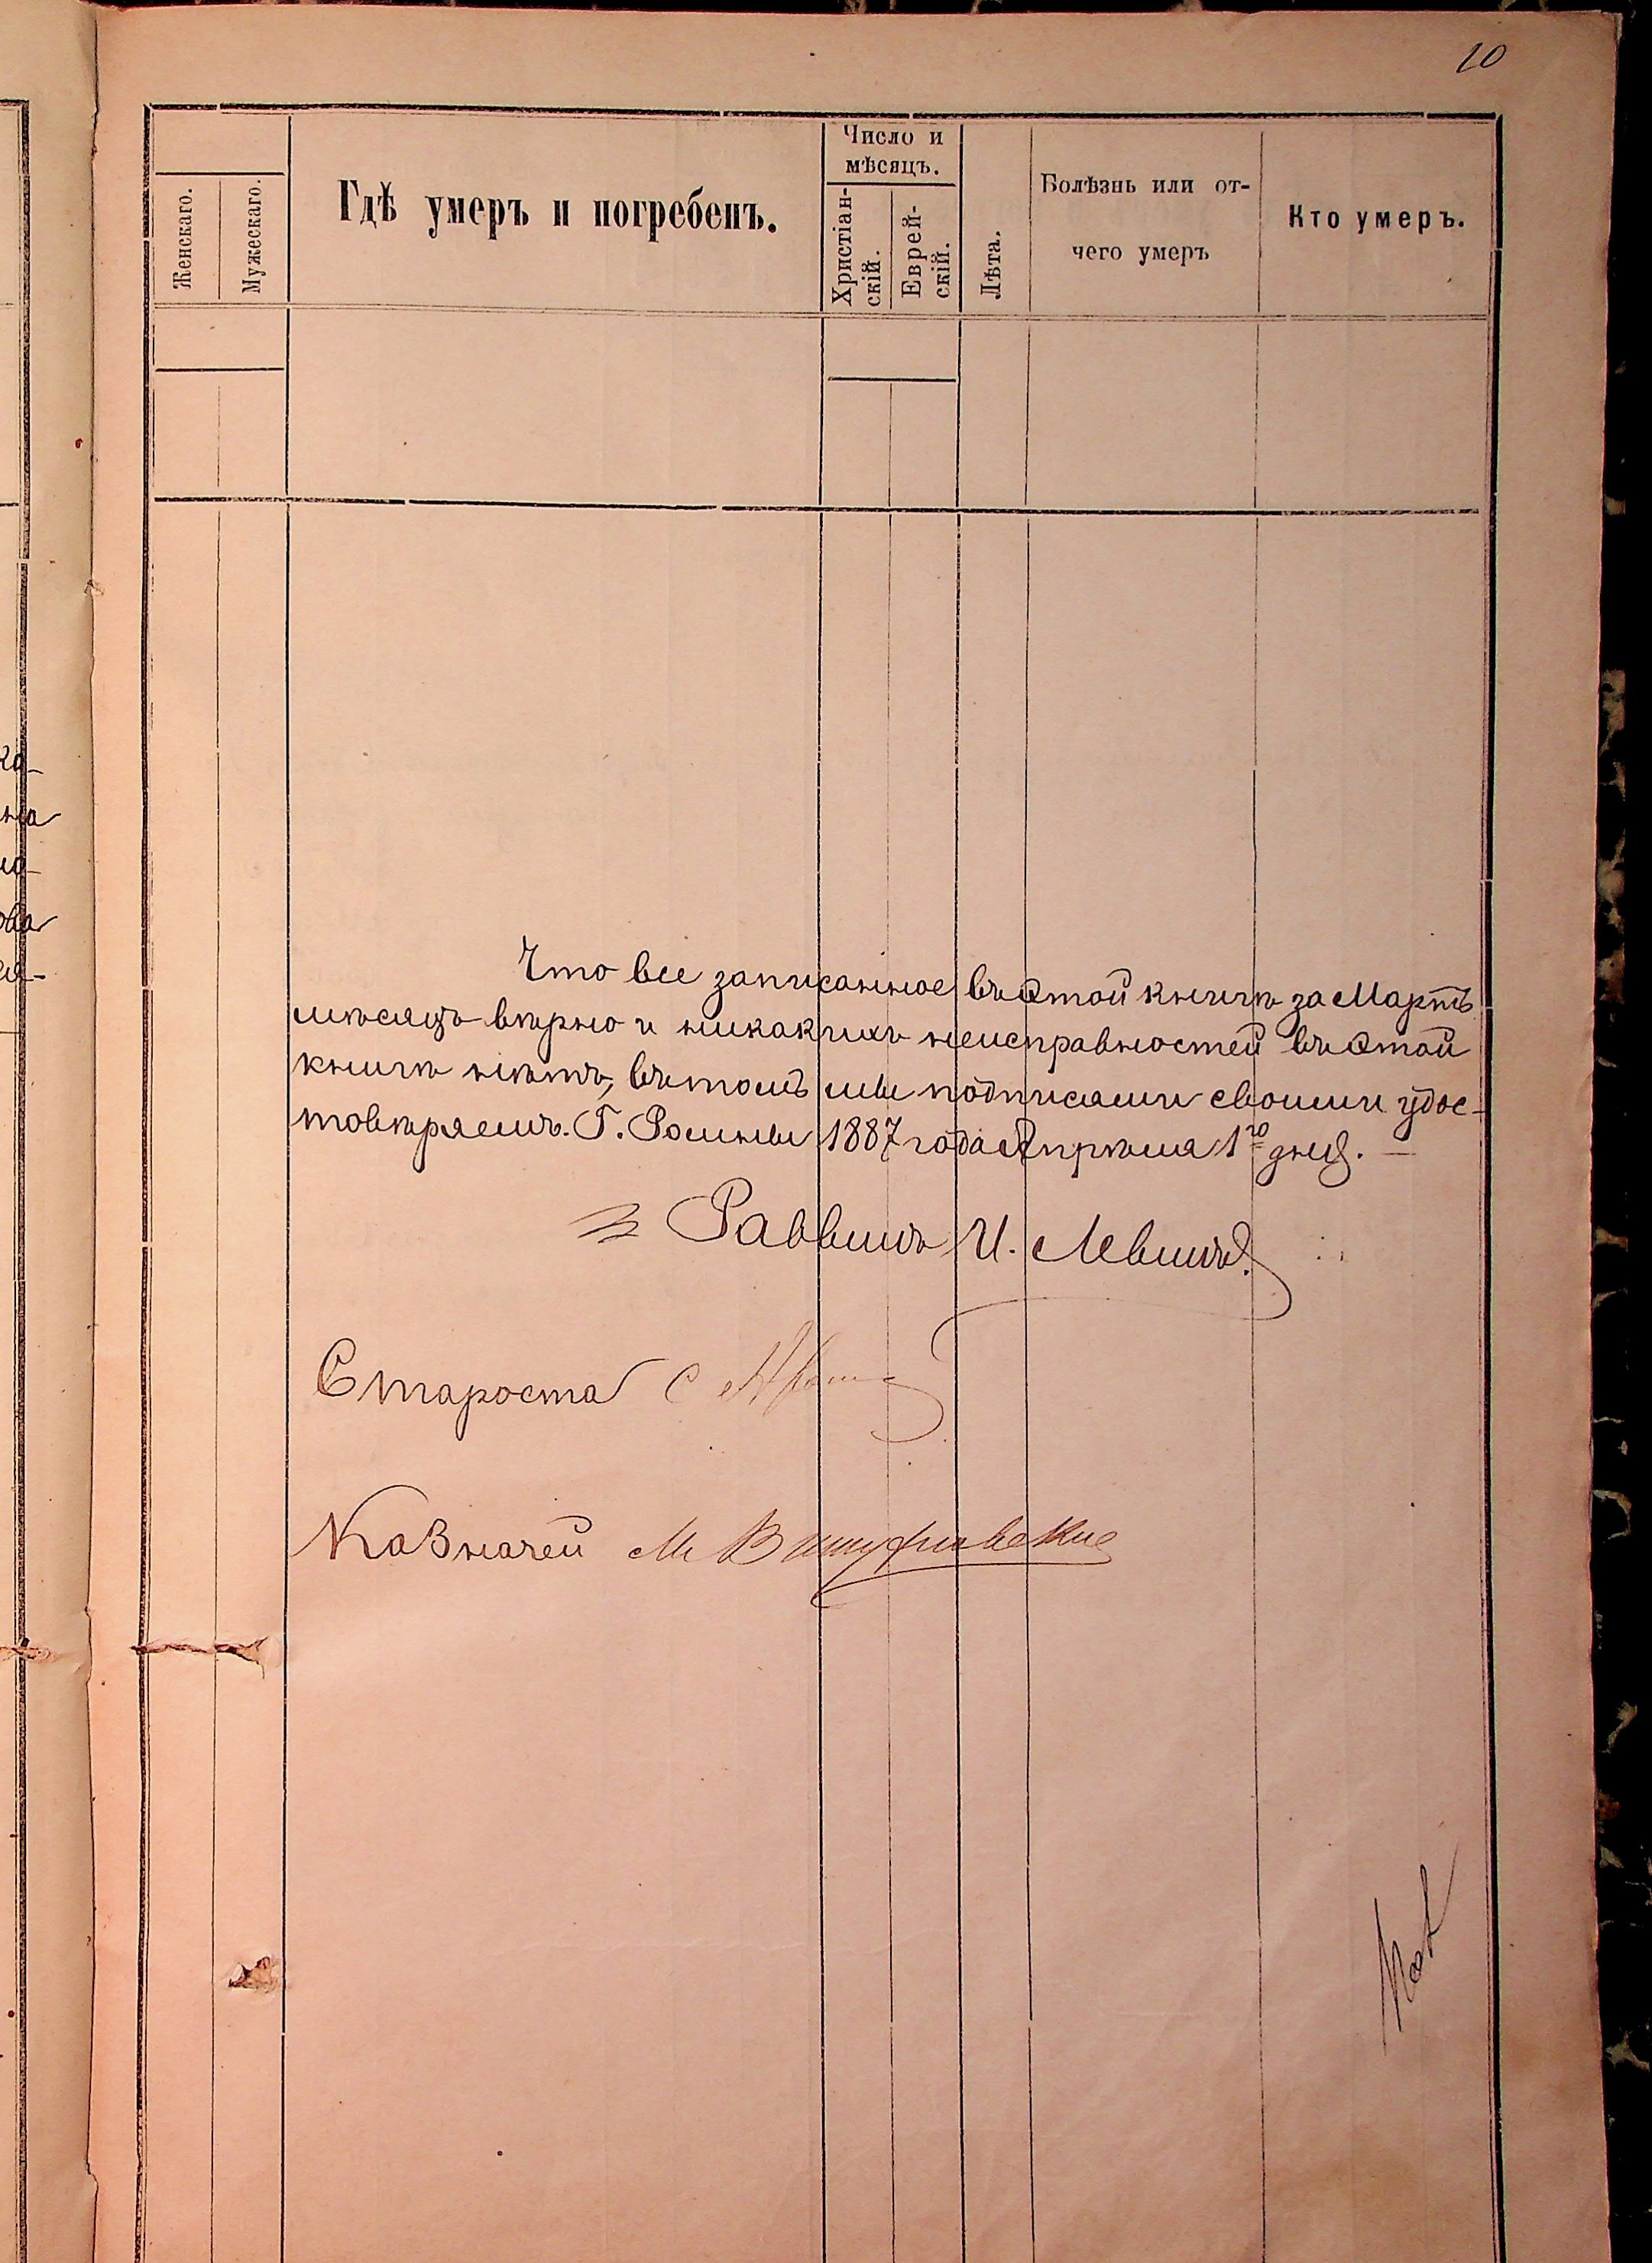 10
Женскаго.
Мужескаго.
Гдѣ умеръ и погребенъ.
Число и
мѣсяцъ.
Христіан-
скій.
Еврей-
скій.
Лѣта.
Болѣзнь или от-
чего умеръ
Кто умеръ.
Что все записанное въ этой книгѣ за Мартъ
мѣсяцъ вѣрно и никакихъ неисправностей въ этой
книгѣ нѣтъ, въ томъ мы подписями своими удос-
товѣряемъ. Г. Ромны 1887 года Апрѣля 1го дня.
Раввинъ И. Левинъ
Староста
Казначей М